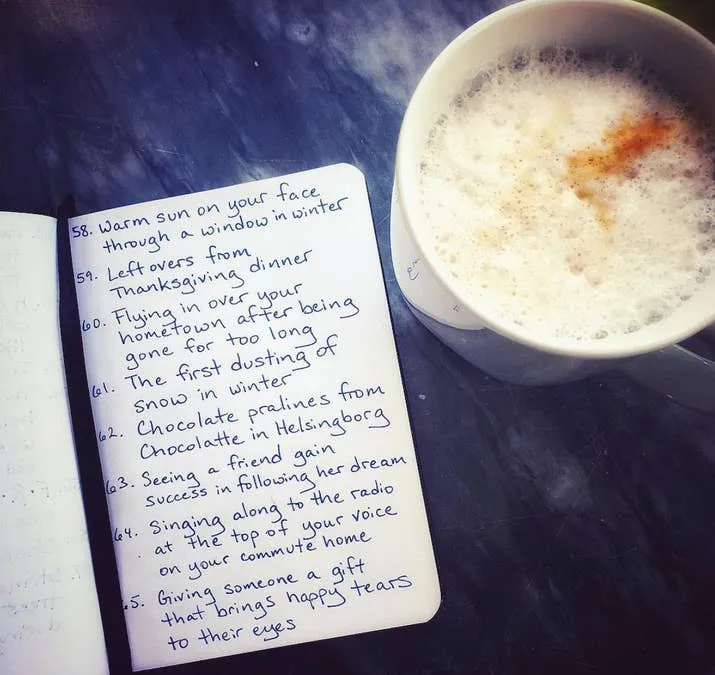 58. Warm sun on your face
through a window in winter
59. Leftovers from
Thanksgiving dinner
60. Flying in over your
hometown after being
gone for too long
61. The first dusting of
snow in winter
62. Chocolate pralines from
Chocolatte in Helsingborg
63. Seeing a friend gain
success in following her dream
64. Singing along to the radio
at the top of your voice
on your commute home
5. Giving someone a gift
that brings happy tears
to their eyes